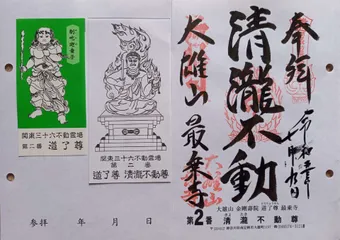 関東三十六不動霊場
第二番 道了尊
関東三十六不動霊場
第二番
道了尊 清瀧不動尊
奉拜
清瀧不動
大雄山 最乗寺
大雄山
大雄山 金剛壽院 道了尊 最乗寺
第2番 清瀧不動尊
参拝 年 月 日